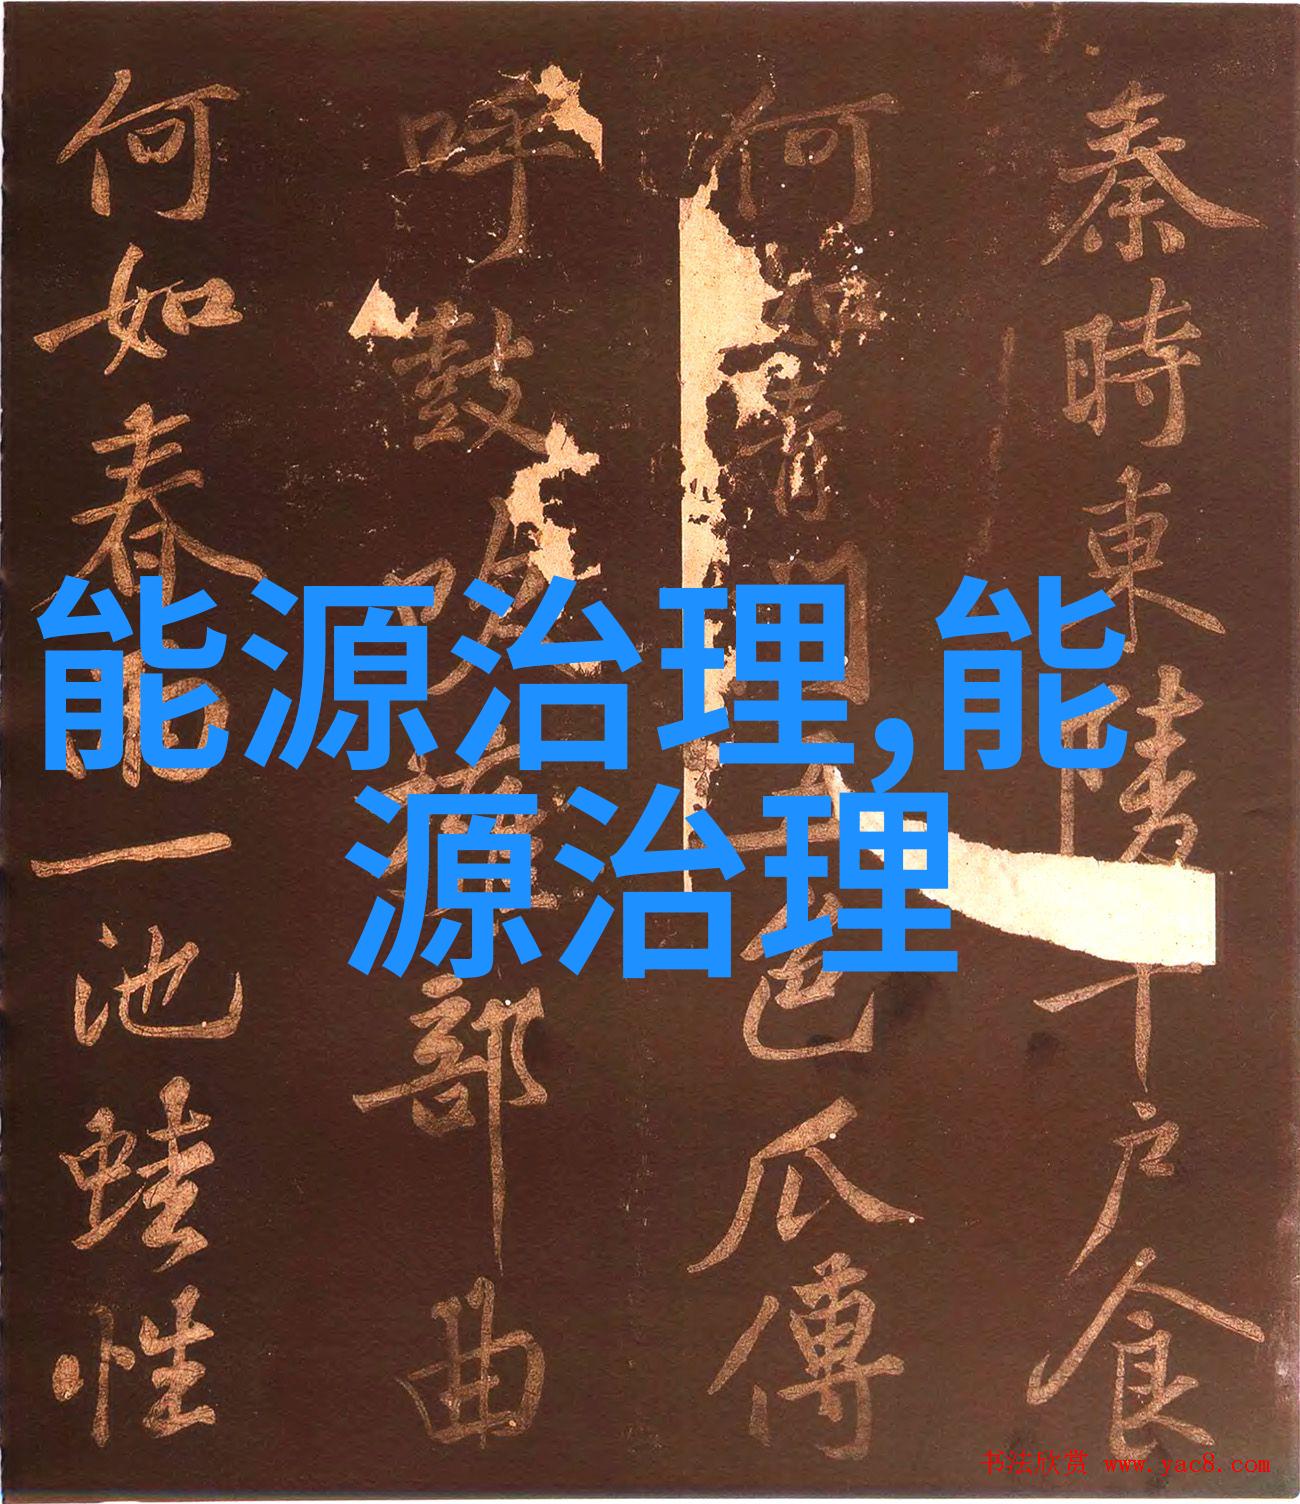 能源治理,能
源治理
秦時東陵千戶食
何如青門五色瓜傳
呼鼓吹部曲
何如春雨一池蛙性
书法欣赏 www.yac8.com